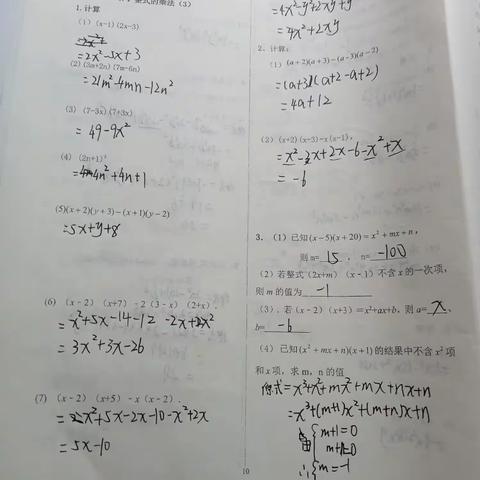 整式的乘法（3）
1.计算
（1）(x-1)(2x-3)
=2x²-5x+3
(2)(3m+2n)(7m-6n)
=21m²-4mn-12n²
（3）(7-3x)(7+3x)
=49-9x²
（4）(2n+1)²
=4n²+4n+1
(5)(x+2)(y+3)-(x+1)(y-2)
=5x+y+8
（6）(x-2)(x+7)-2(3-x)(2+x).
=x²+5x-14-12-2x+2x²
=3x²+3x-26
（7）(x-2)(x+5)-x(x-2).
=x²+5x-2x-10-x²+2x
=5x-10
=4x²-y²+2xy+y²
=4x²+2xy
2、计算:
（1）(a+2)(a+3)-(a-3)(a-2)
=(a+3)(a+2-a+2)
=4a+12
（2）(x+2)(x-3)-x(x-1),
=x²-3x+2x-6-x²+x
=-6
3、（1）已知(x-5)(x+20)=x²+mx+n,
则m=15，n=-100
（2）若整式(2x+m)(x-1)不含x的一次项,
则m的值为 -1
（3）.若(x-2)(x+3)=x²+ax+b，则a=x、
b=-6
（4）已知(x²+mx+n)(x+1)的结果中不含x²项
和x项，求m，n的值
原式=x³+x²+mx²+mx+nx+n
=x³+(m+1)x²+(m+n)x+n
m+1=0
m+n=0
∴ m=-1
10